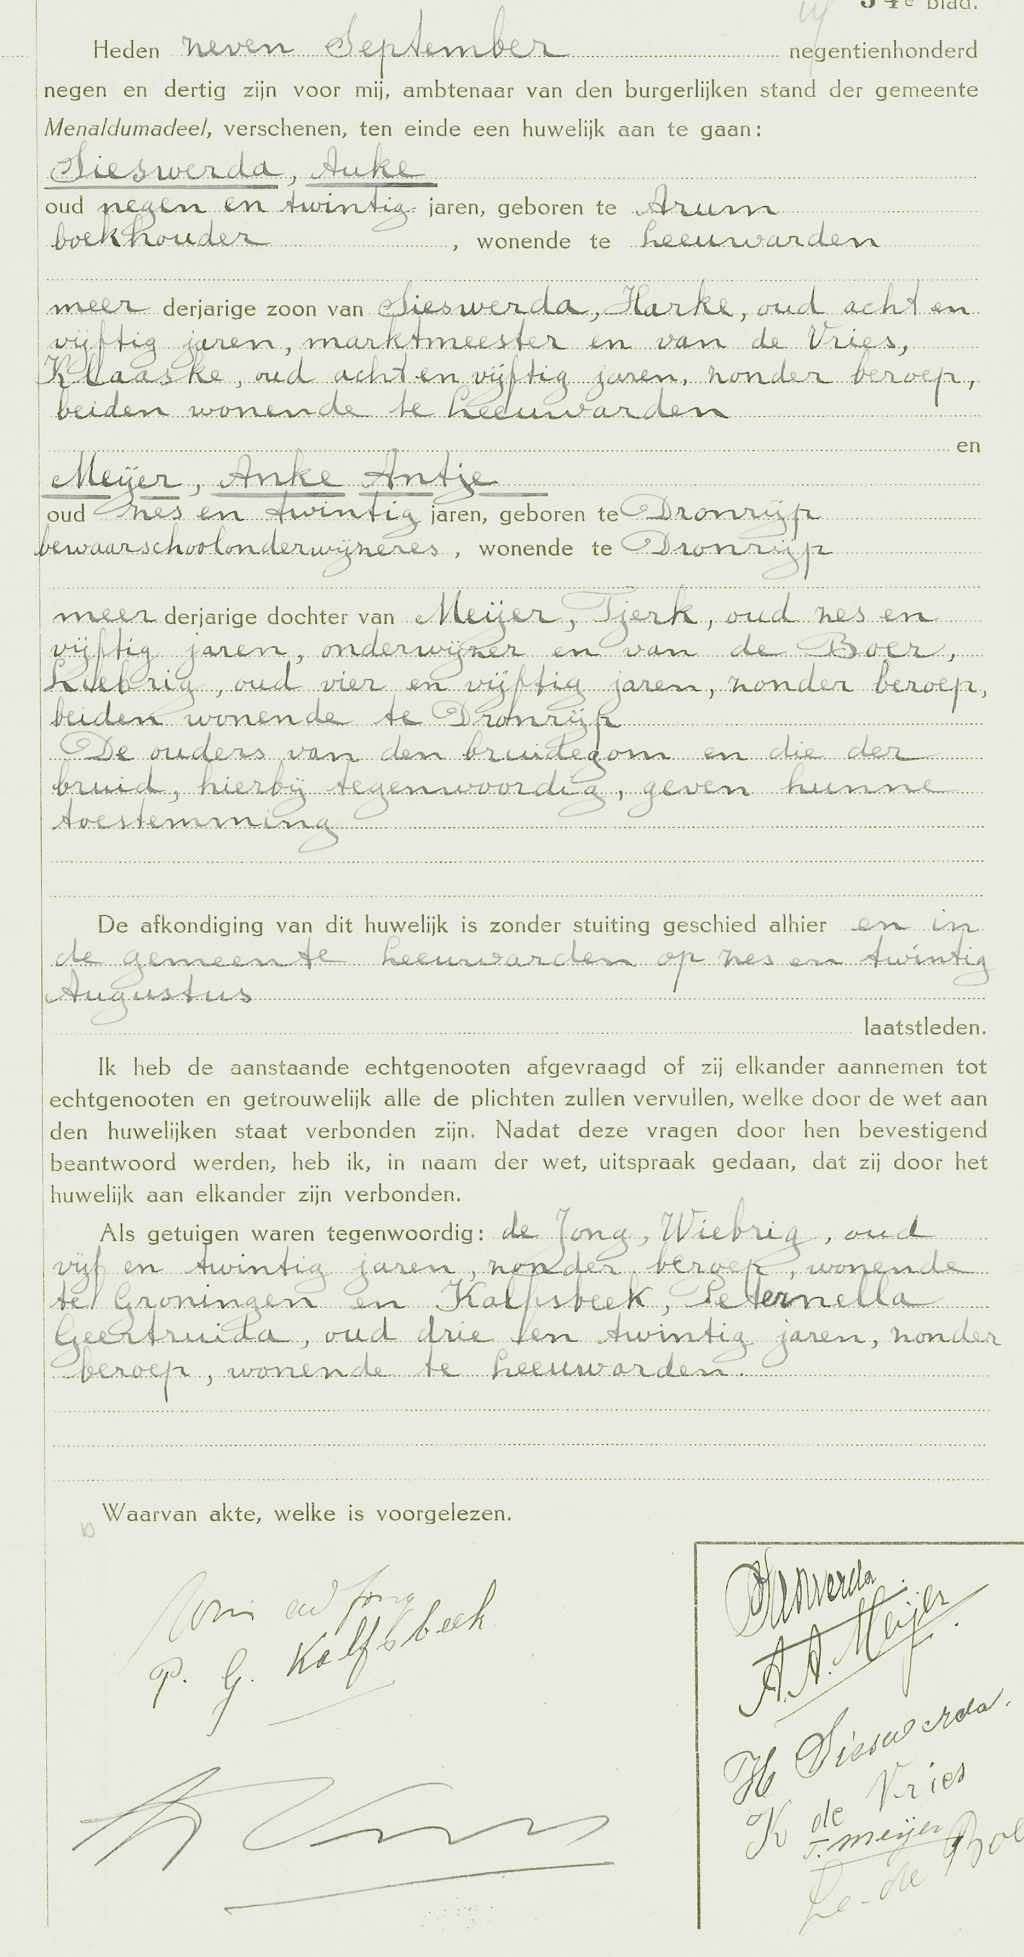 34e blad.
Heden zeven September negentienhonderd
negen en dertig zijn voor mij, ambtenaar van den burgerlijken stand der gemeente
Menaldumadeel, verschenen, ten einde een huwelijk aan te gaan:
Sieswerda, Auke
oud negen en twintig jaren, geboren te Arum
boekhouder, wonende te Leeuwarden
meer derjarige zoon van Sieswerda, Harke, oud acht en
vijftig jaren, marktmeester en van de Vries,
Klaaske, oud acht en vijftig jaren, zonder beroep,
beiden wonende te Leeuwarden
en
Meijer, Anke Antje
oud zes en twintig jaren, geboren te Dronrijp
bewaarschoolonderwijzeres, wonende te Dronrijp
meer derjarige dochter van Meijer, Tjerk, oud zes en
vijftig jaren, onderwijzer en van de Boer,
Liebrig, oud vier en vijftig jaren, zonder beroep,
beiden wonende te Dronrijp
De ouders van den bruidegom en die der
bruid, hierbij tegenwoordig, geven hunne
toestemming
De afkondiging van dit huwelijk is zonder stuiting geschied alhier en in
de gemeente Leeuwarden op zes en twintig
Augustus
laatstleden.
Ik heb de aanstaande echtgenooten afgevraagd of zij elkander aannemen tot
echtgenooten en getrouwelijk alle de plichten zullen vervullen, welke door de wet aan
den huwelijken staat verbonden zijn. Nadat deze vragen door hen bevestigend
beantwoord werden, heb ik, in naam der wet, uitspraak gedaan, dat zij door het
huwelijk aan elkander zijn verbonden.
Als getuigen waren tegenwoordig: de Jong, Wiebrig, oud
vijf en twintig jaren, zonder beroep, wonende
te Groningen en Kalfsbeek, Peternella
Geertruida, oud drie en twintig jaren, zonder
beroep, wonende te Leeuwarden.
Waarvan akte, welke is voorgelezen.
Sieswerda.
A. A. Meijer.
P. G. Kalfsbeek
H Sieswerda.
K de Vries
T. Meijer
L. de Boe